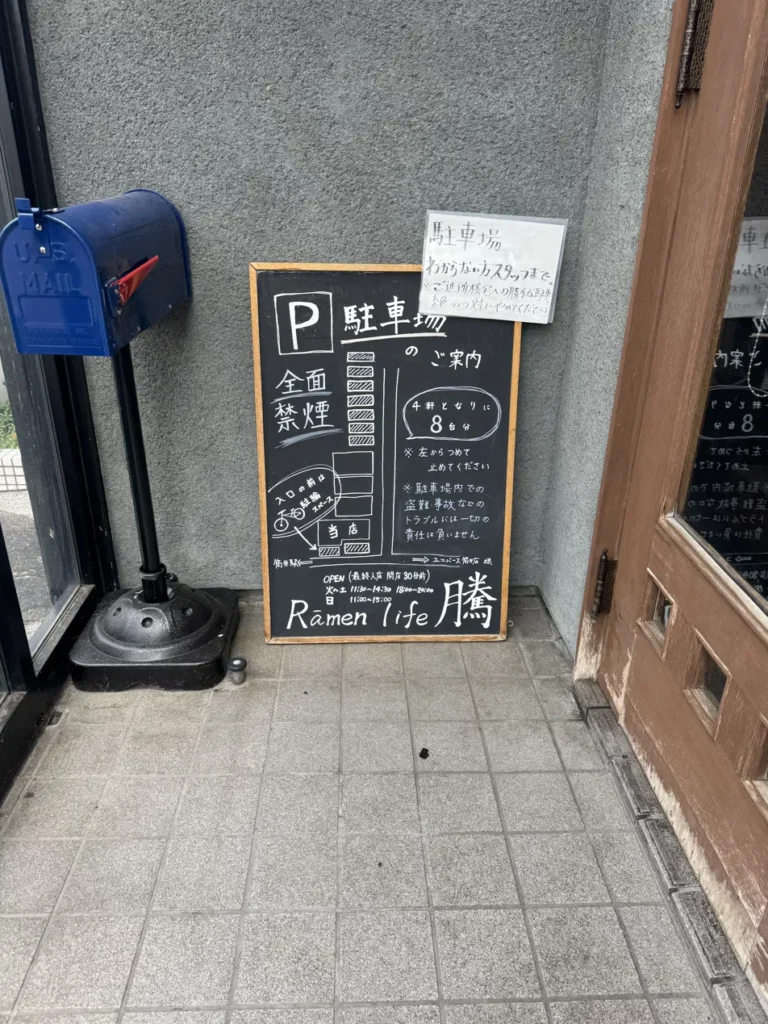 U.S.
MAIL
駐車場
わからない方スタッフまで。
P
駐車場
の
ご案内
全面
禁煙
4軒となりに
8台分
※左からつめて
止めてください
※駐車場内での
盗難事故などの
トラブルには一切の
責任は負いません
入口の前は
駐輪
スペース
当店
OPEN (最終入店 閉店30分前)
火~土 11:30~14:30 18:00~20:00
日 11:00~15:00
Rāmen life 騰